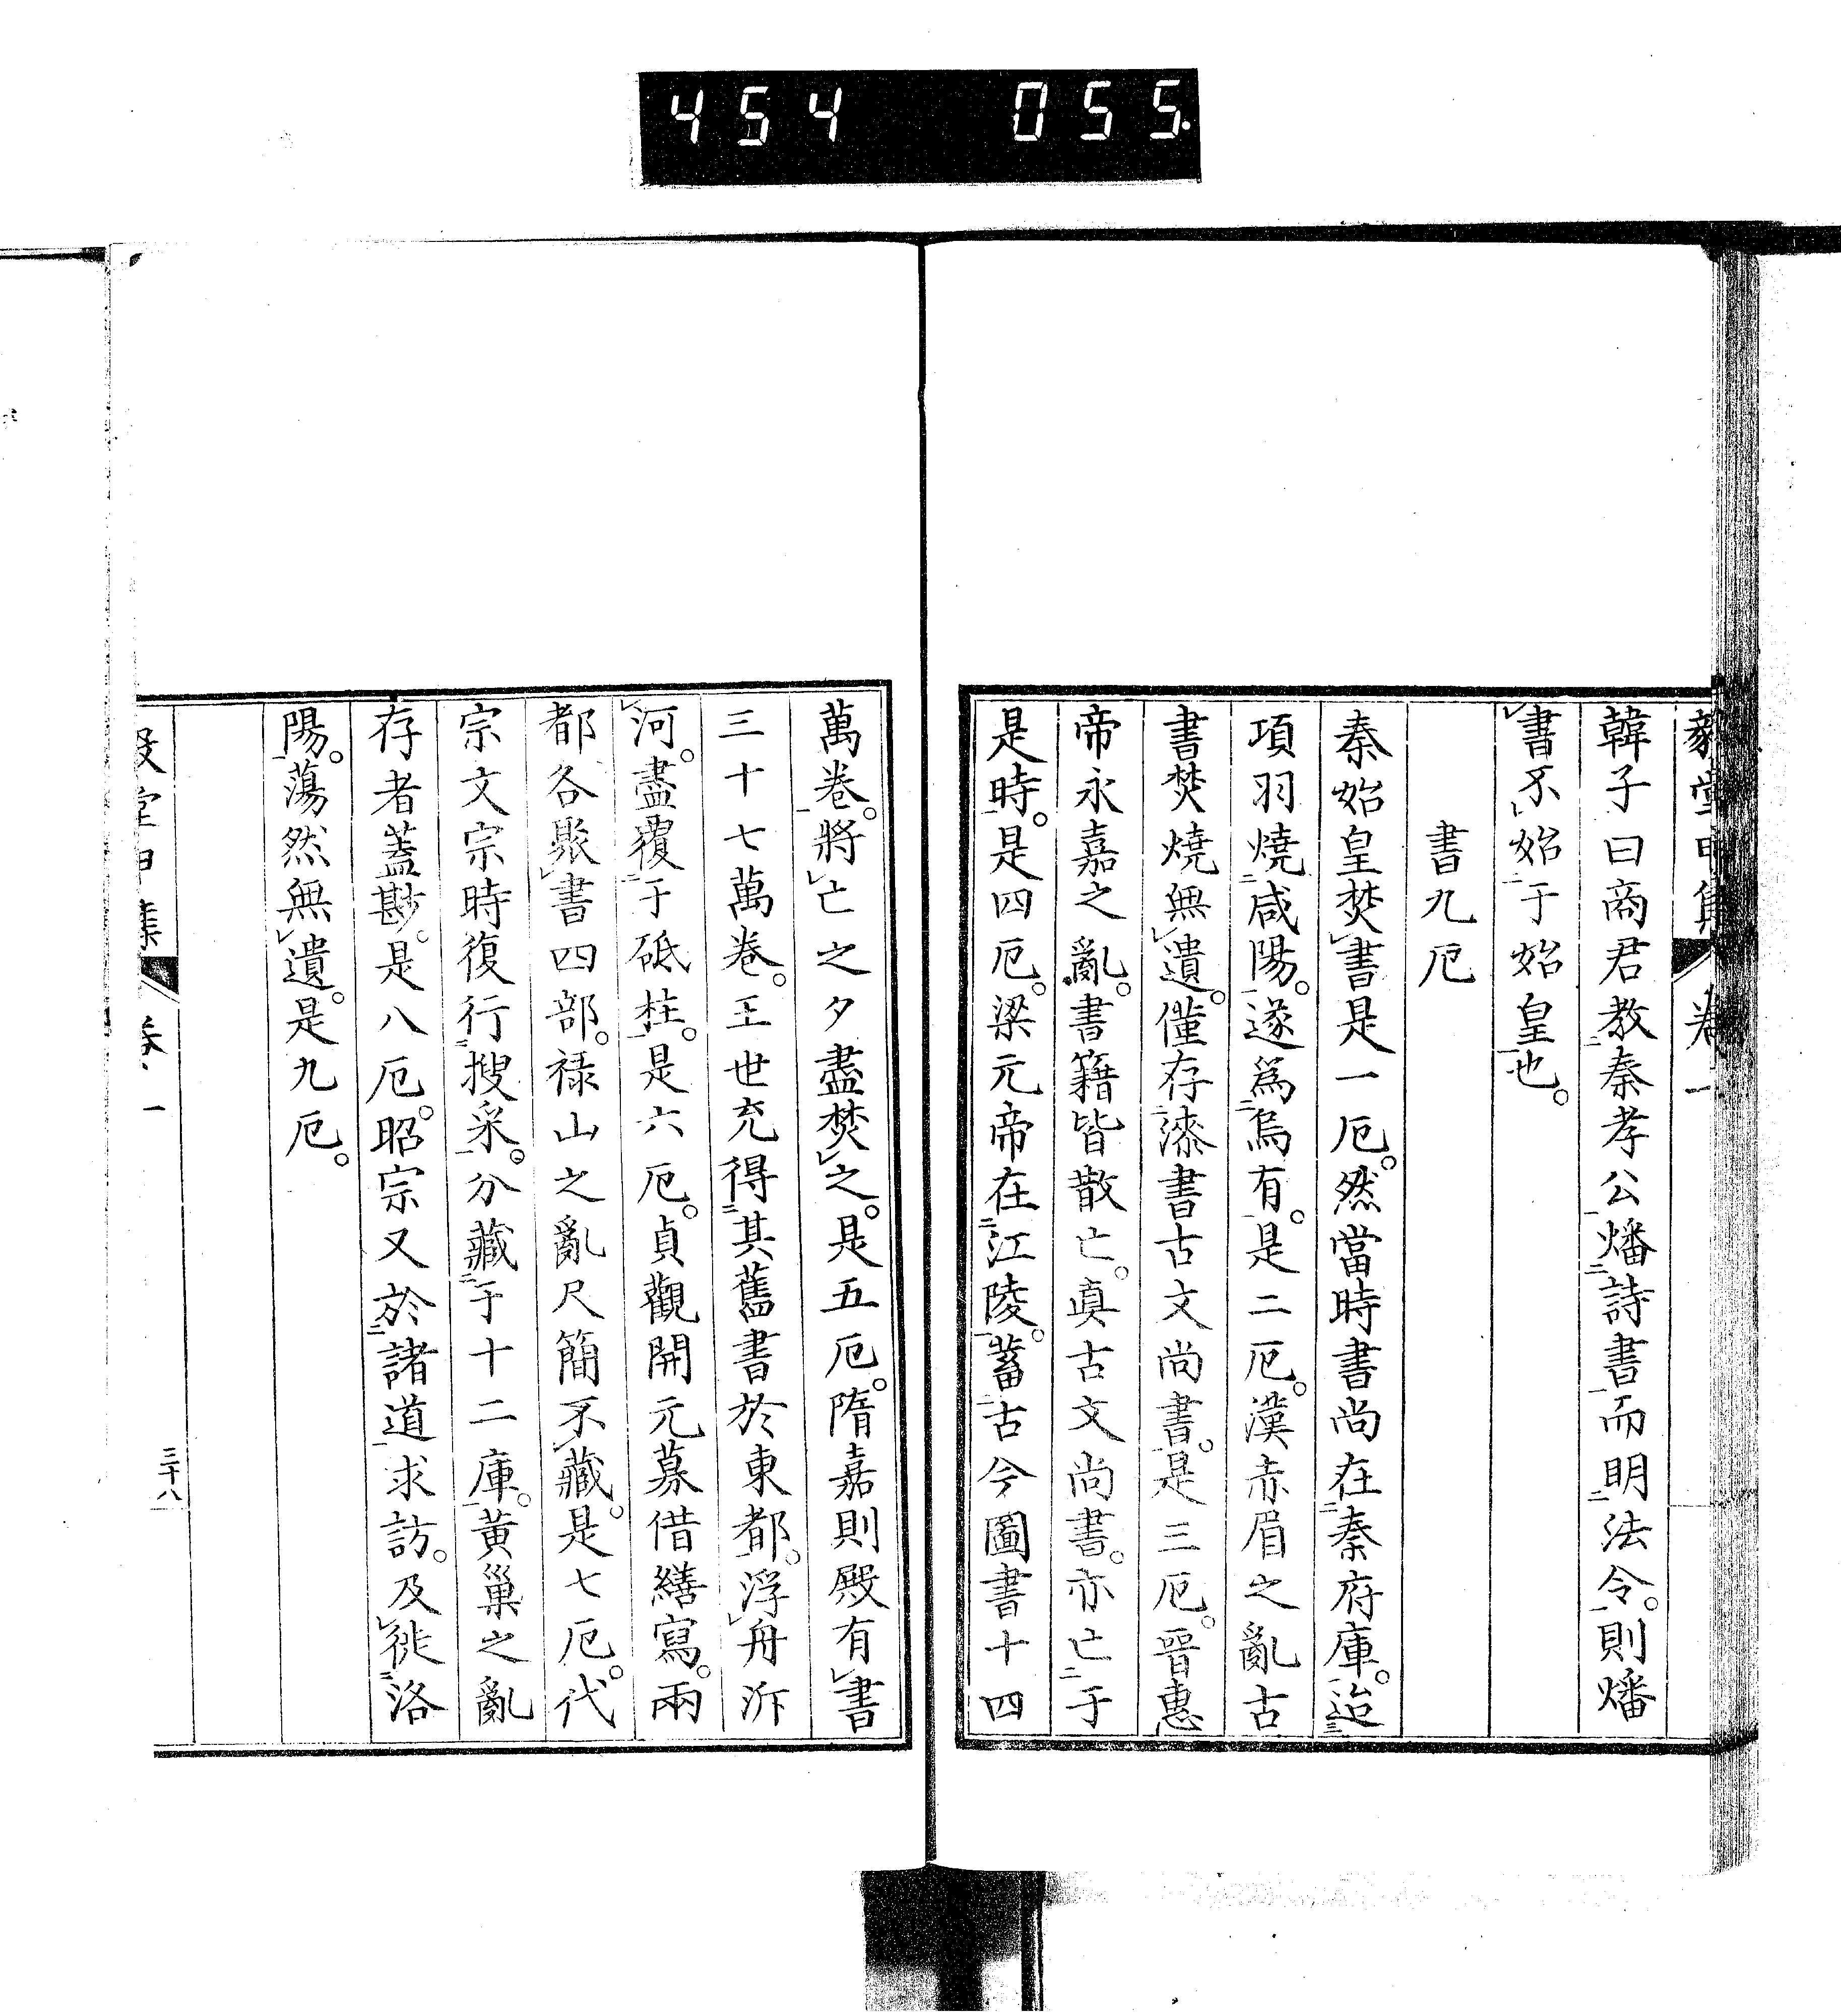 454 055
毅堂甲集 卷一
韓子曰商君教秦孝公燔詩書而明法令。則燔
書不始于始皇也。
書九厄
秦始皇焚書是一厄。然當時書尚在秦府庫。迨
項羽燒咸陽。遂爲烏有。是二厄。漢赤眉之亂古
書焚燒無遺。僅存漆書古文尚書。是三厄。晉惠
帝永嘉之亂。書籍皆散亡。眞古文尚書。亦亡于
是時。是四厄。梁元帝在江陵。蓄古今圖書十四
萬卷。將亡之夕盡焚之。是五厄。隋嘉則殿有書
三十七萬卷。王世充得其舊書於東都。浮舟泝
河。盡覆于砥柱。是六厄。貞觀開元募借繕寫。兩
都各聚書四部。祿山之亂尺簡不藏。是七厄。代
宗文宗時復行搜采。分藏于十二庫。黄巢之亂
存者蓋尠。是八厄。昭宗又於諸道求訪。及徙洛
陽。蕩然無遺。是九厄。
毅堂甲集 卷一 三十八